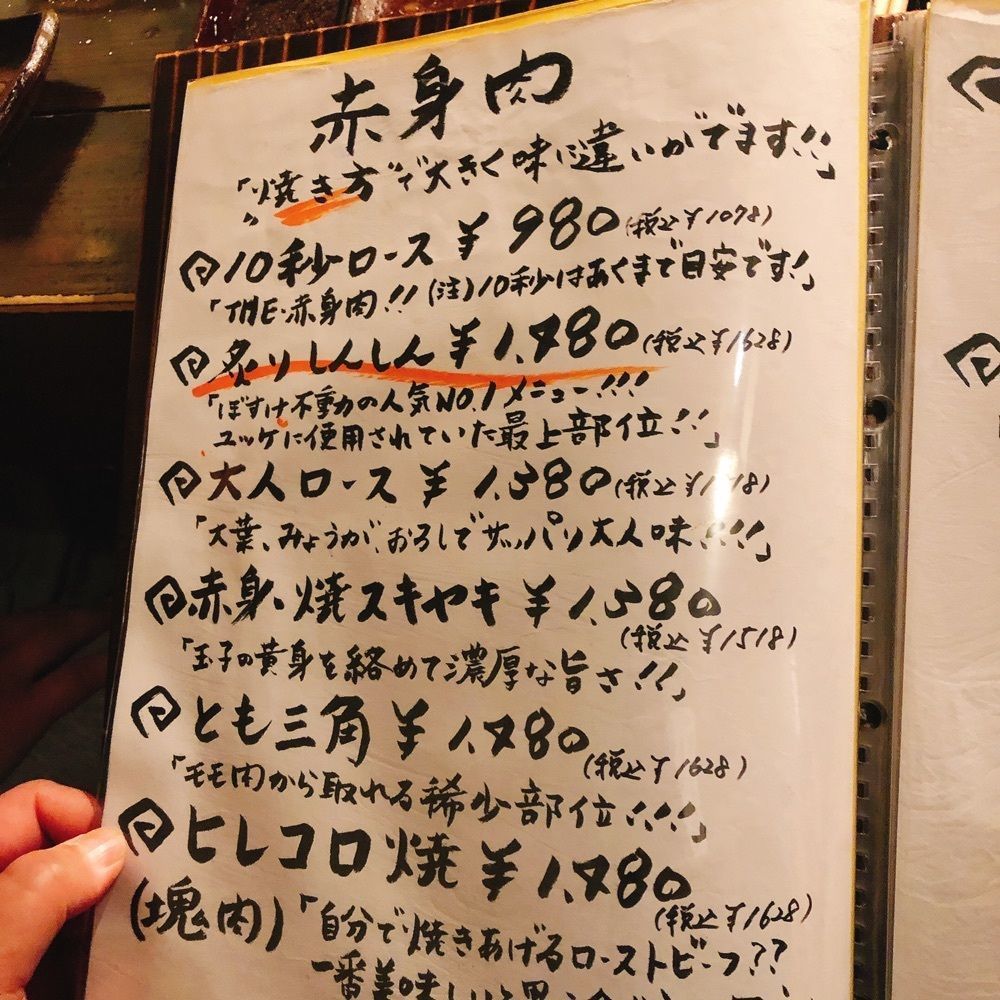 赤身肉
「"焼き方"で大きく味に違いがでます!!」
10秒ロース ¥980(税込¥1078)
「THE・赤身肉!!(注)10秒はあくまで目安です!」
炙りしんしん ¥1,480(税込¥1628)
「ぼすけ不動の人気NO.1メニュー!!!
ユッケに使用されていた最上部位!!」
大人ロース ¥1,380(税込¥1518)
「大葉、みょうが、おろしでサッパリ大人味!!!」
赤身・焼スキヤキ ¥1,380
(税込¥1518)
「玉子の黄身を絡めて濃厚な旨さ!!」
とも三角 ¥1,480
(税込¥1628)
「モモ肉から取れる稀少部位!!!」
ヒレコロ焼 ¥1,480
(税込¥1628)
(塊肉)「自分で焼きあげるローストビーフ??
一番美味しいと思